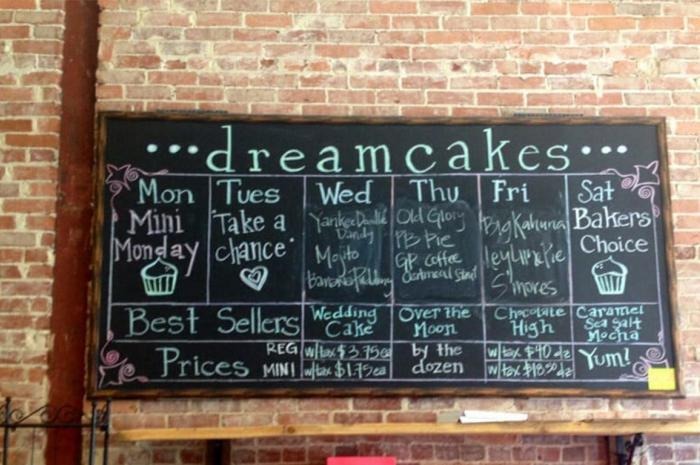 ...dreamcakes...
Mon Tues Wed Thu Fri Sat
Mini
Monday
"Take a
chance"
Yankee Doodle
Dandy
Mojito
Banana Pudding
Old Glory
PB Pie
GP coffee
Oatmeal Stout
Big Kahuna
Key Lime Pie
S'mores
Bakers
Choice
Best Sellers
Wedding
Cake
Over the
Moon
Chocolate
High
Caramel
Sea Salt
Mocha
Prices
REG
MINI
w/tax $3.75ea
w/tax $1.75ea
by the
dozen
w/tax $40 dz
w/tax $18.50 dz
Yum!